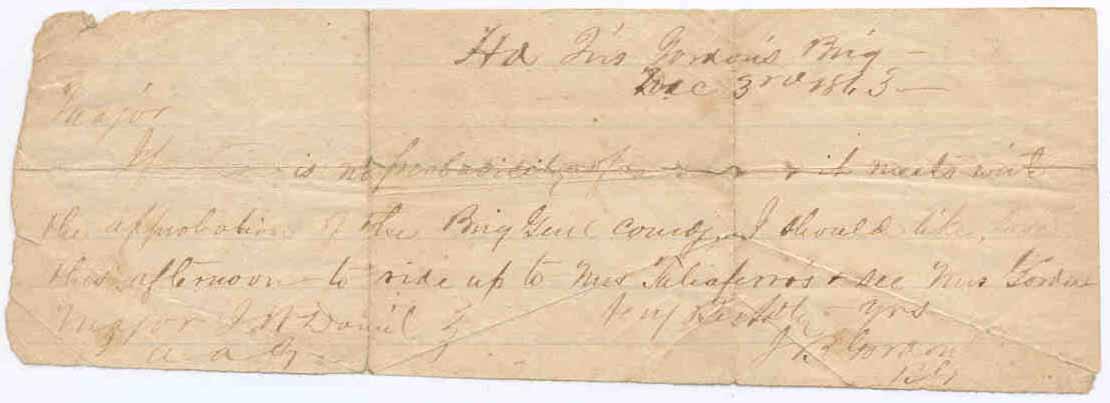 Hd Qrs Gordon's Brig -
Dec 3rd 1863 -
Major
is no probability of & it meets with
the approbation of the Brig Genl comdg I should like,
this afternoon - to ride up to Mrs Taliaferro's & see Mrs Gordon
Very Respctly Yrs
Major J W Daniel
J B Gordon
a a G
B G